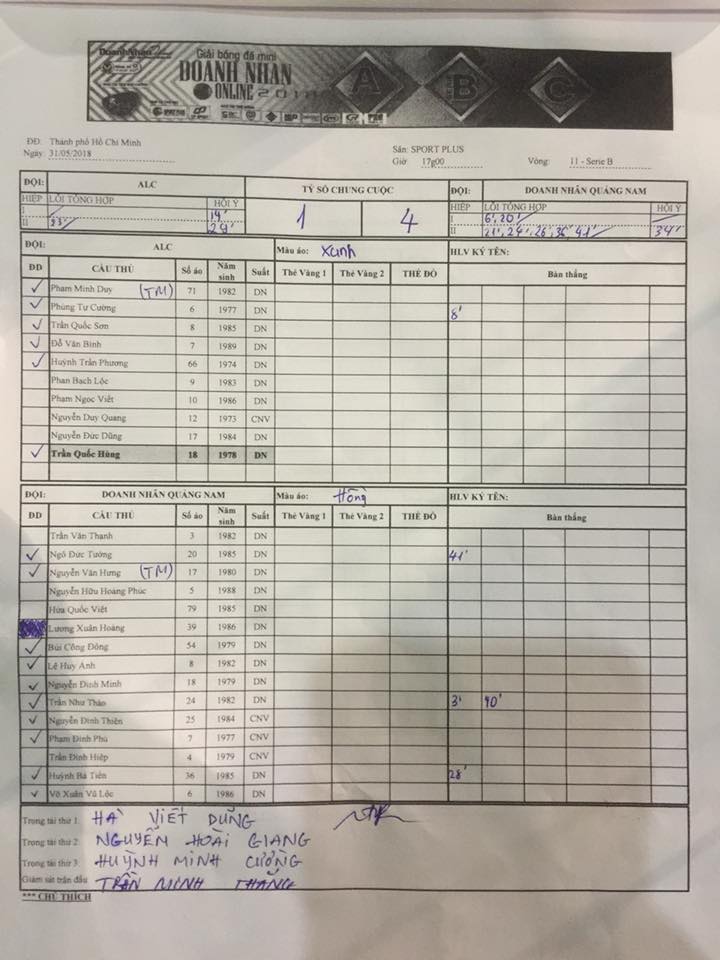 DoanhNhan
Giải bóng đá mini
DOANH NHAN
ONLINE 2018
A B C
ĐĐ: Thành phố Hồ Chí Minh
Ngày: 31/05/2018
Sân: SPORT PLUS
Giờ 17g00 Vòng: 11 - Serie B
ĐỘI: ALC TỶ SỐ CHUNG CUỘC ĐỘI: DOANH NHÂN QUẢNG NAM
HIỆP LỖI TỔNG HỢP HỘI Ý 1 4 HIỆP LỖI TỔNG HỢP HỘI Ý
I 19' I 6', 20'
II 23' 29' II 21', 24', 26', 36', 41' 34'
ĐỘI: ALC Màu áo: Xanh HLV KÝ TÊN:
ĐD CẦU THỦ Số áo Năm sinh Suất Thẻ Vàng 1 Thẻ Vàng 2 THẺ ĐỎ Bàn thắng
✓ Phạm Minh Duy (TM) 71 1982 DN
✓ Phùng Tự Cường 6 1977 DN 8'
✓ Trần Quốc Sơn 8 1985 DN
✓ Đỗ Văn Bình 7 1989 DN
✓ Huỳnh Trần Phương 66 1974 DN
Phan Bạch Lộc 9 1983 DN
Phạm Ngọc Viết 10 1986 DN
Nguyễn Duy Quang 12 1973 CNV
Nguyễn Đức Dũng 17 1984 DN
✓ Trần Quốc Hùng 18 1978 DN
ĐỘI: DOANH NHÂN QUẢNG NAM Màu áo: Hồng HLV KÝ TÊN:
ĐD CẦU THỦ Số áo Năm sinh Suất Thẻ Vàng 1 Thẻ Vàng 2 THẺ ĐỎ Bàn thắng
Trần Văn Thanh 3 1982 DN
✓ Ngô Đức Tường 20 1985 DN 41'
✓ Nguyễn Văn Hưng (TM) 17 1980 DN
Nguyễn Hữu Hoàng Phúc 5 1988 DN
Hứa Quốc Việt 79 1985 DN
Lương Xuân Hoàng 39 1986 DN
✓ Bùi Công Đông 54 1979 DN
✓ Lê Huy Anh 8 1982 DN
✓ Nguyễn Đình Minh 18 1979 DN
✓ Trần Như Thảo 24 1982 DN 3' 40'
✓ Nguyễn Đình Thiên 25 1984 CNV
✓ Phạm Đình Phú 7 1977 CNV
Trần Đình Hiệp 4 1979 CNV
✓ Huỳnh Bá Tiên 36 1985 DN 28'
✓ Võ Xuân Vũ Lộc 6 1986 DN
Trọng tài thứ 1: HÀ VIẾT DŨNG
Trọng tài thứ 2: NGUYỄN HOÀI GIANG
Trọng tài thứ 3: HUỲNH MINH CƯỜNG
Giám sát trận đấu TRẦN MINH THẮNG
*** CHÚ THÍCH